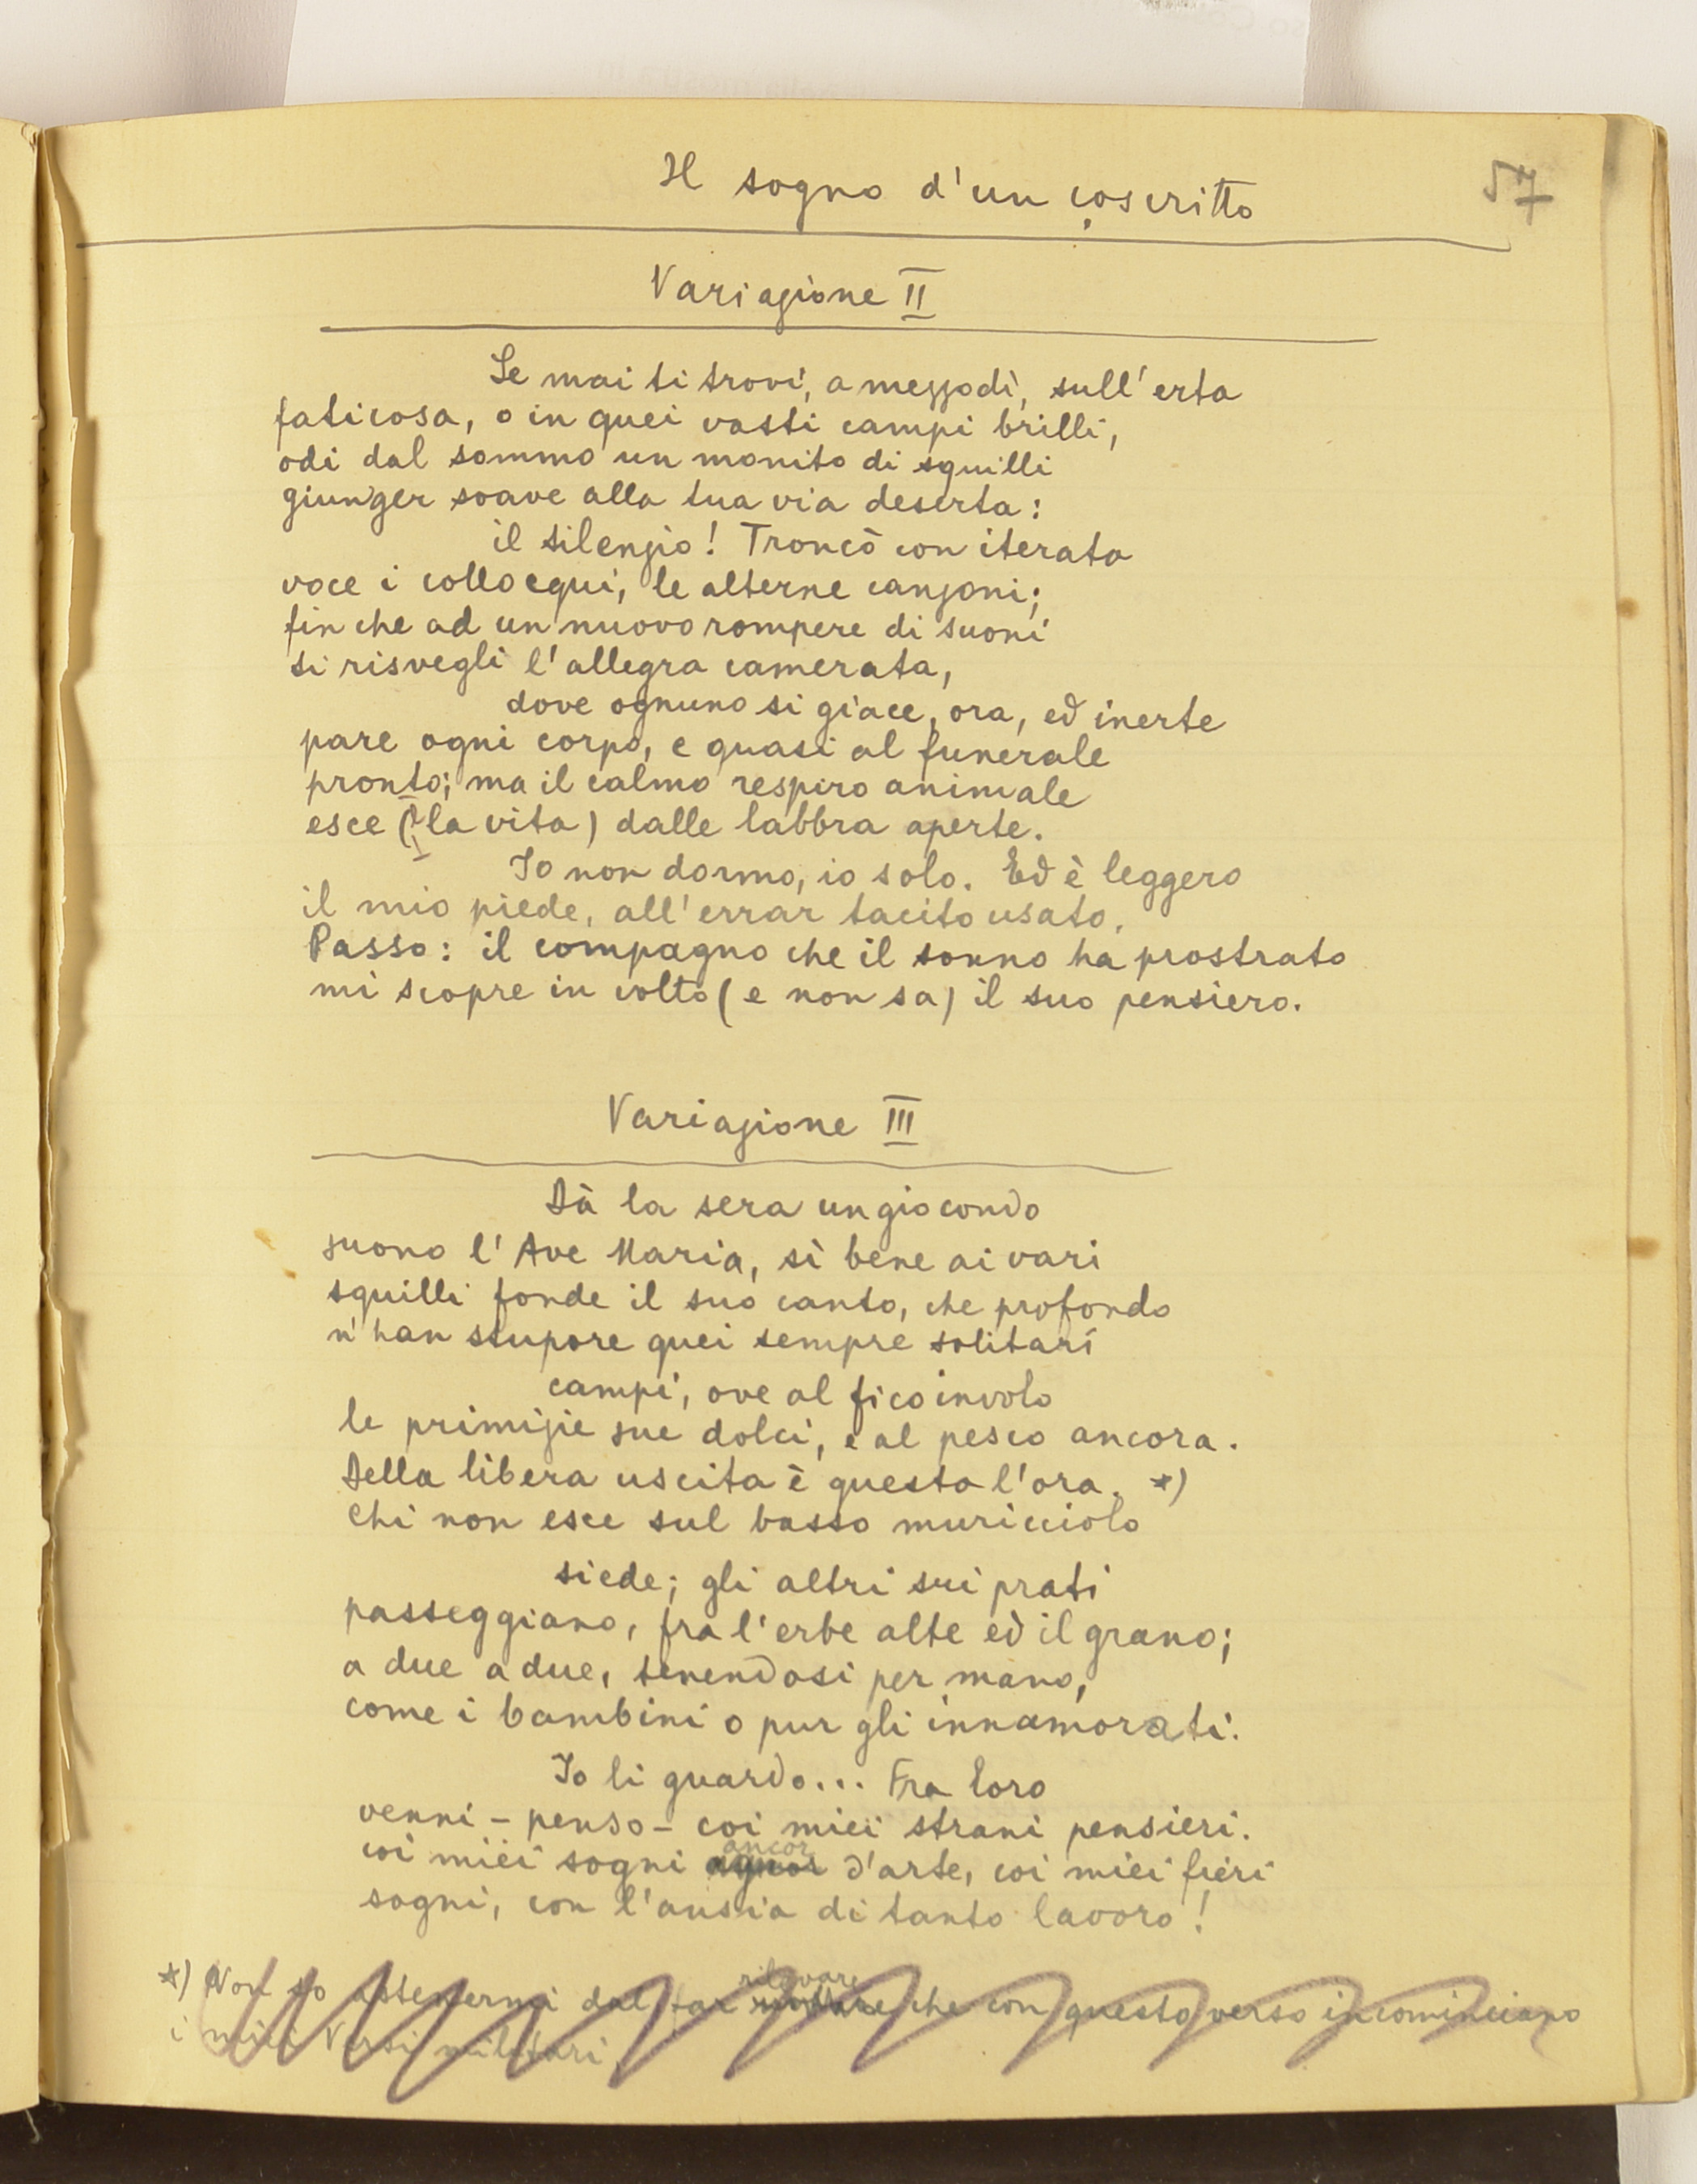 Il sogno d'un coscritto
57
Variazione II
Se mai ti trovi, a mezzodì, sull'erta
faticosa, o in quei vasti campi brilli,
odi dal sommo un monito di squilli
giunger soave alla tua via deserta:
il silenzio! Troncò con iterata
voce i colloequi, le alterne canzoni;
fin che ad un nuovo rompere di suoni
si risvegli l'allegra camerata,
dove ognuno si giace, ora, ed inerte
pare ogni corpo, e quasi al funerale
pronto; ma il calmo respiro animale
esce (la vita) dalle labbra aperte.
Io non dormo, io solo. Ed è leggero
il mio piede, all'errar tacito usato.
Passo: il compagno che il sonno ha prostrato
mi scopre in volto (e non sa) il suo pensiero.
Variazione III
Dà la sera un giocondo
suono l'Ave Maria, sì bene ai vari
squilli fonde il suo canto, che profondo
n'han stupore quei sempre solitari
campi, ove al fico involo
le primizie sue dolci, e al pesco ancora.
Della libera uscita è questa l'ora. *)
Chi non esce sul basso muricciolo
siede; gli altri sui prati
passeggiano, fra l'erbe alte ed il grano;
a due a due, tenendosi per mano,
come i bambini o pur gli innamorati.
Io li guardo... Fra loro
venni – penso – coi miei strani pensieri.
coi miei sogni ancor d'arte, coi miei fieri
sogni, con l'ansia di tanto lavoro!
*) Non so astenermi dal far rilevare che con questo verso incominciano
i miei Versi militari